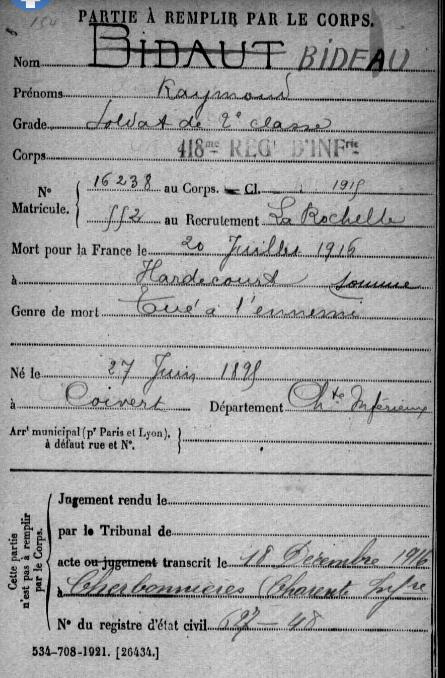 PARTIE À REMPLIR PAR LE CORPS.
Nom BIDAUT BIDEAU
Prénoms Raymond
Grade Soldat de 2e classe
Corps 418me REGt D'INFrie
N° Matricule. 16238 au Corps. — Cl. 1915
552 au Recrutement La Rochelle
Mort pour la France le 20 Juillet 1916
à Hardecourt Somme
Genre de mort Tué à l'ennemi
Né le 27 Juin 1895
à Coivert Département Chte Inférieure
Arrt municipal (pr Paris et Lyon), à défaut rue et N°.
Cette partie n'est pas à remplir par le Corps.
Jugement rendu le
par le Tribunal de
acte ou jugement transcrit le 18 Décembre 1916
à Cherbonnières (Charente Infre
N° du registre d'état civil 48
534-708-1921. [26434.]